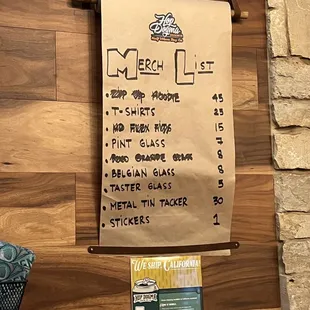 Hop
Dogma
MERCH LIST
ZIP UP HOODIE 45
T-SHIRTS 25
15
PINT GLASS 7
GRANDE 8
BELGIAN GLASS 8
TASTER GLASS 5
METAL TIN TACKER 30
STICKERS 1
WE SHIP, CALIFORNIA!
HOP DOGMA